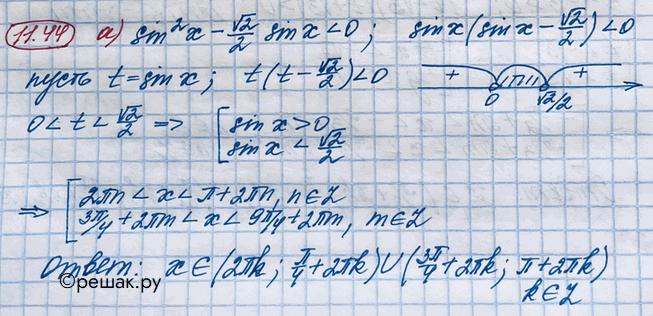 11.44 а) sin²x - √2/2 sin x < 0; sin x (sin x - √2/2) < 0
пусть t = sin x; t(t - √2/2) < 0
+ +
0 √2/2
0 < t < √2/2 => [ sin x > 0
sin x < √2/2
=> [ 2πn < x < π + 2πn, n ∈ Z
3π/4 + 2πm < x < 9π/4 + 2πm, m ∈ Z
Ответ: x ∈ (2πk; π/4 + 2πk) ∪ (3π/4 + 2πk; π + 2πk)
k ∈ Z
©решак.ру